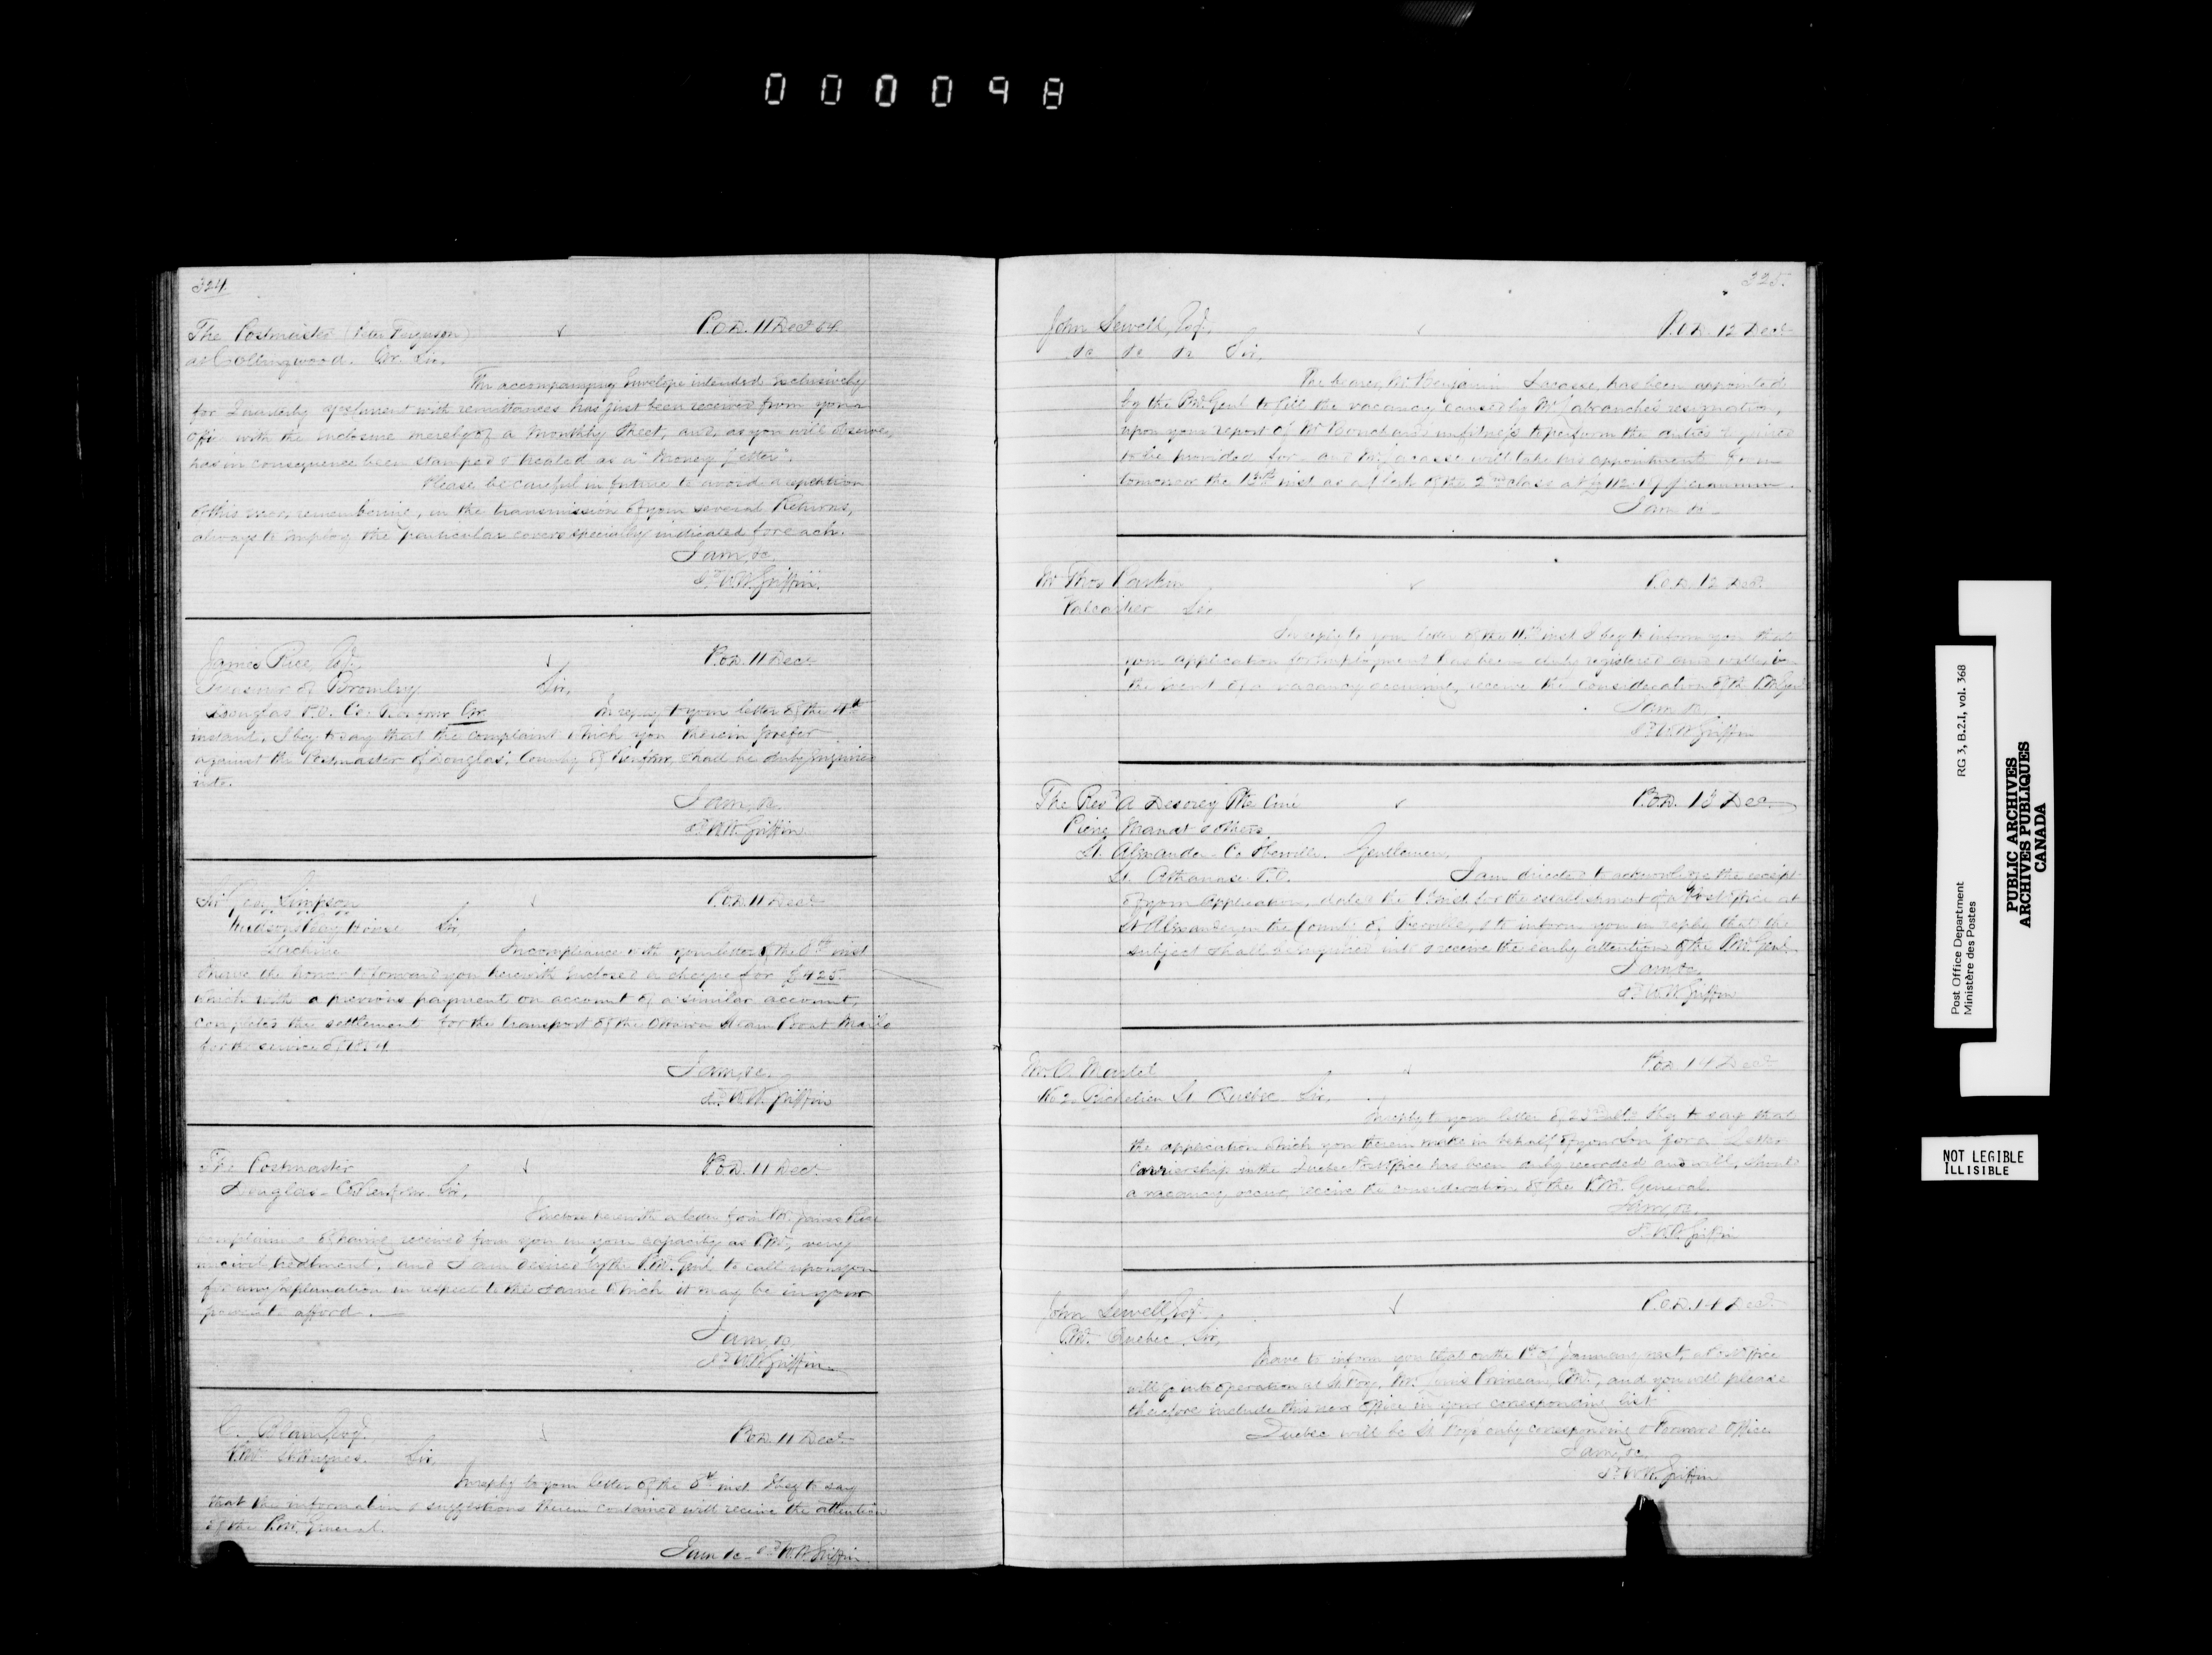 000098
324.
The Postmaster (Peter Ferguson) P.O.D. 11 Decr 54.
at Collingwood. Cw. Sir,
The accompanying Envelope intended exclusively
for Quarterly adjustment with remittances has just been received from your
office with the inclosure merely of a Monthly Sheet, and, as you will observe,
has in consequence been stamped & treated as a "Money Letter".
Please be careful in future to avoid a repetition
of this error, remembering, in the transmission of your several Returns,
always to employ the particular covers specially indicated for each.
I am, &c.
sd W.H. Griffin.
James Rice, Esq. P.O.D. 11 Decr
Treasurer of Bromley Sir,
Douglas P.O. Co. Renfrew Cw. In reply to your letter of the 4th
instant, I beg to say that the complaint which you therein prefer
against the Postmaster of Douglas, County of Renfrew, shall be duly inquired
into.
I am, &c.
sd W.H. Griffin
Sir Geo. Simpson P.O.D. 11 Decr
Hudsons Bay House Sir,
Lachine In compliance with your letter of the 8th inst
I have the honor to forward you herewith inclosed a cheque for £425.
which with a previous payment on account of a similar account,
completes the settlement for the transport of the Ottawa Steam Boat Mails
for the service of 1854.
I am, &c.
sd W.H. Griffin
The Postmaster P.O.D. 11 Decr
Douglas - Co. Renfrew Sir,
I inclose herewith a letter from Mr. James Rice
complaining of having received from you in your capacity as P.M., very
uncivil treatment, and I am desired by the P.M. Genl to call upon you
for any explanation in respect to the same which it may be in your
power to afford.
I am, &c
sd W.H. Griffin
Esq. P.O.D. 11 Decr
P.M. Sir,
In reply to your letter of the 8th inst I beg to say
that the information & suggestions therein contained will receive the attention
of the P.M. General.
I am &c - sd W.H. Griffin
325.
John Sewell, Esq. P.O.D. 12 Decr
&c &c &c Sir,
The bearer, Mr Benjamin Lacasse, has been appointed
by the P.M. Genl to fill the vacancy caused by Mr Labranche's resignation,
upon your report of Mr unfitness to perform the duties required
to be provided for - and Mr Lacasse will take his appointment from
tomorrow the 13th inst as a Clerk of the 2nd class at per annum.
I am &c -
Mr Thos Parkin P.O.D. 12 Decr
Valcartier Sir
In reply to your letter of the 11th inst I beg to inform you that
your application for employment has been duly registered and will, in
the event of a vacancy occurring, receive the consideration of the P.M. Genl.
I am &c,
sd W.H. Griffin
The Revd A Ptre Curé P.O.D. 13 Dec.
Pierre & others
St. Alexander - Co Iberville. Gentlemen,
St. Athanase P.O. I am directed to acknowledge the receipt
of your application, dated the inst for the establishment of a Post Office at
St Alexander in the County of Iberville, & to inform you in reply that the
subject shall be inquired into & receive the early attention of the P.M. Genl.
I am &c,
sd W.H. Griffin
Mr. O. Martel P.O.D. 14 Decr
No 2. Richelieu St. Quebec Sir,
In reply to your letter of 23d ulto I beg to say that
the application which you therein make in behalf of your Son for a Letter
Carriership in the Quebec Post Office has been duly recorded and will, should
a vacancy occur, receive the consideration of the P.M. General.
I am, &c.
sd W.H. Griffin
John Sewell, Esq. P.O.D. 14 Decr
P.M. Quebec Sir,
I have to inform you that on the 1st of January next, a P. Office
will go into operation at St Foy, Mr. Louis P.M., and you will please
therefore include this new Office in your corresponding list.
Quebec will be St Foy's only corresponding & Forward Office.
I am, &c.
sd W.H. Griffin
Post Office Department RG 3, B.2.I, vol. 368
Ministère des Postes
PUBLIC ARCHIVES
ARCHIVES PUBLIQUES
CANADA
NOT LEGIBLE
ILLISIBLE